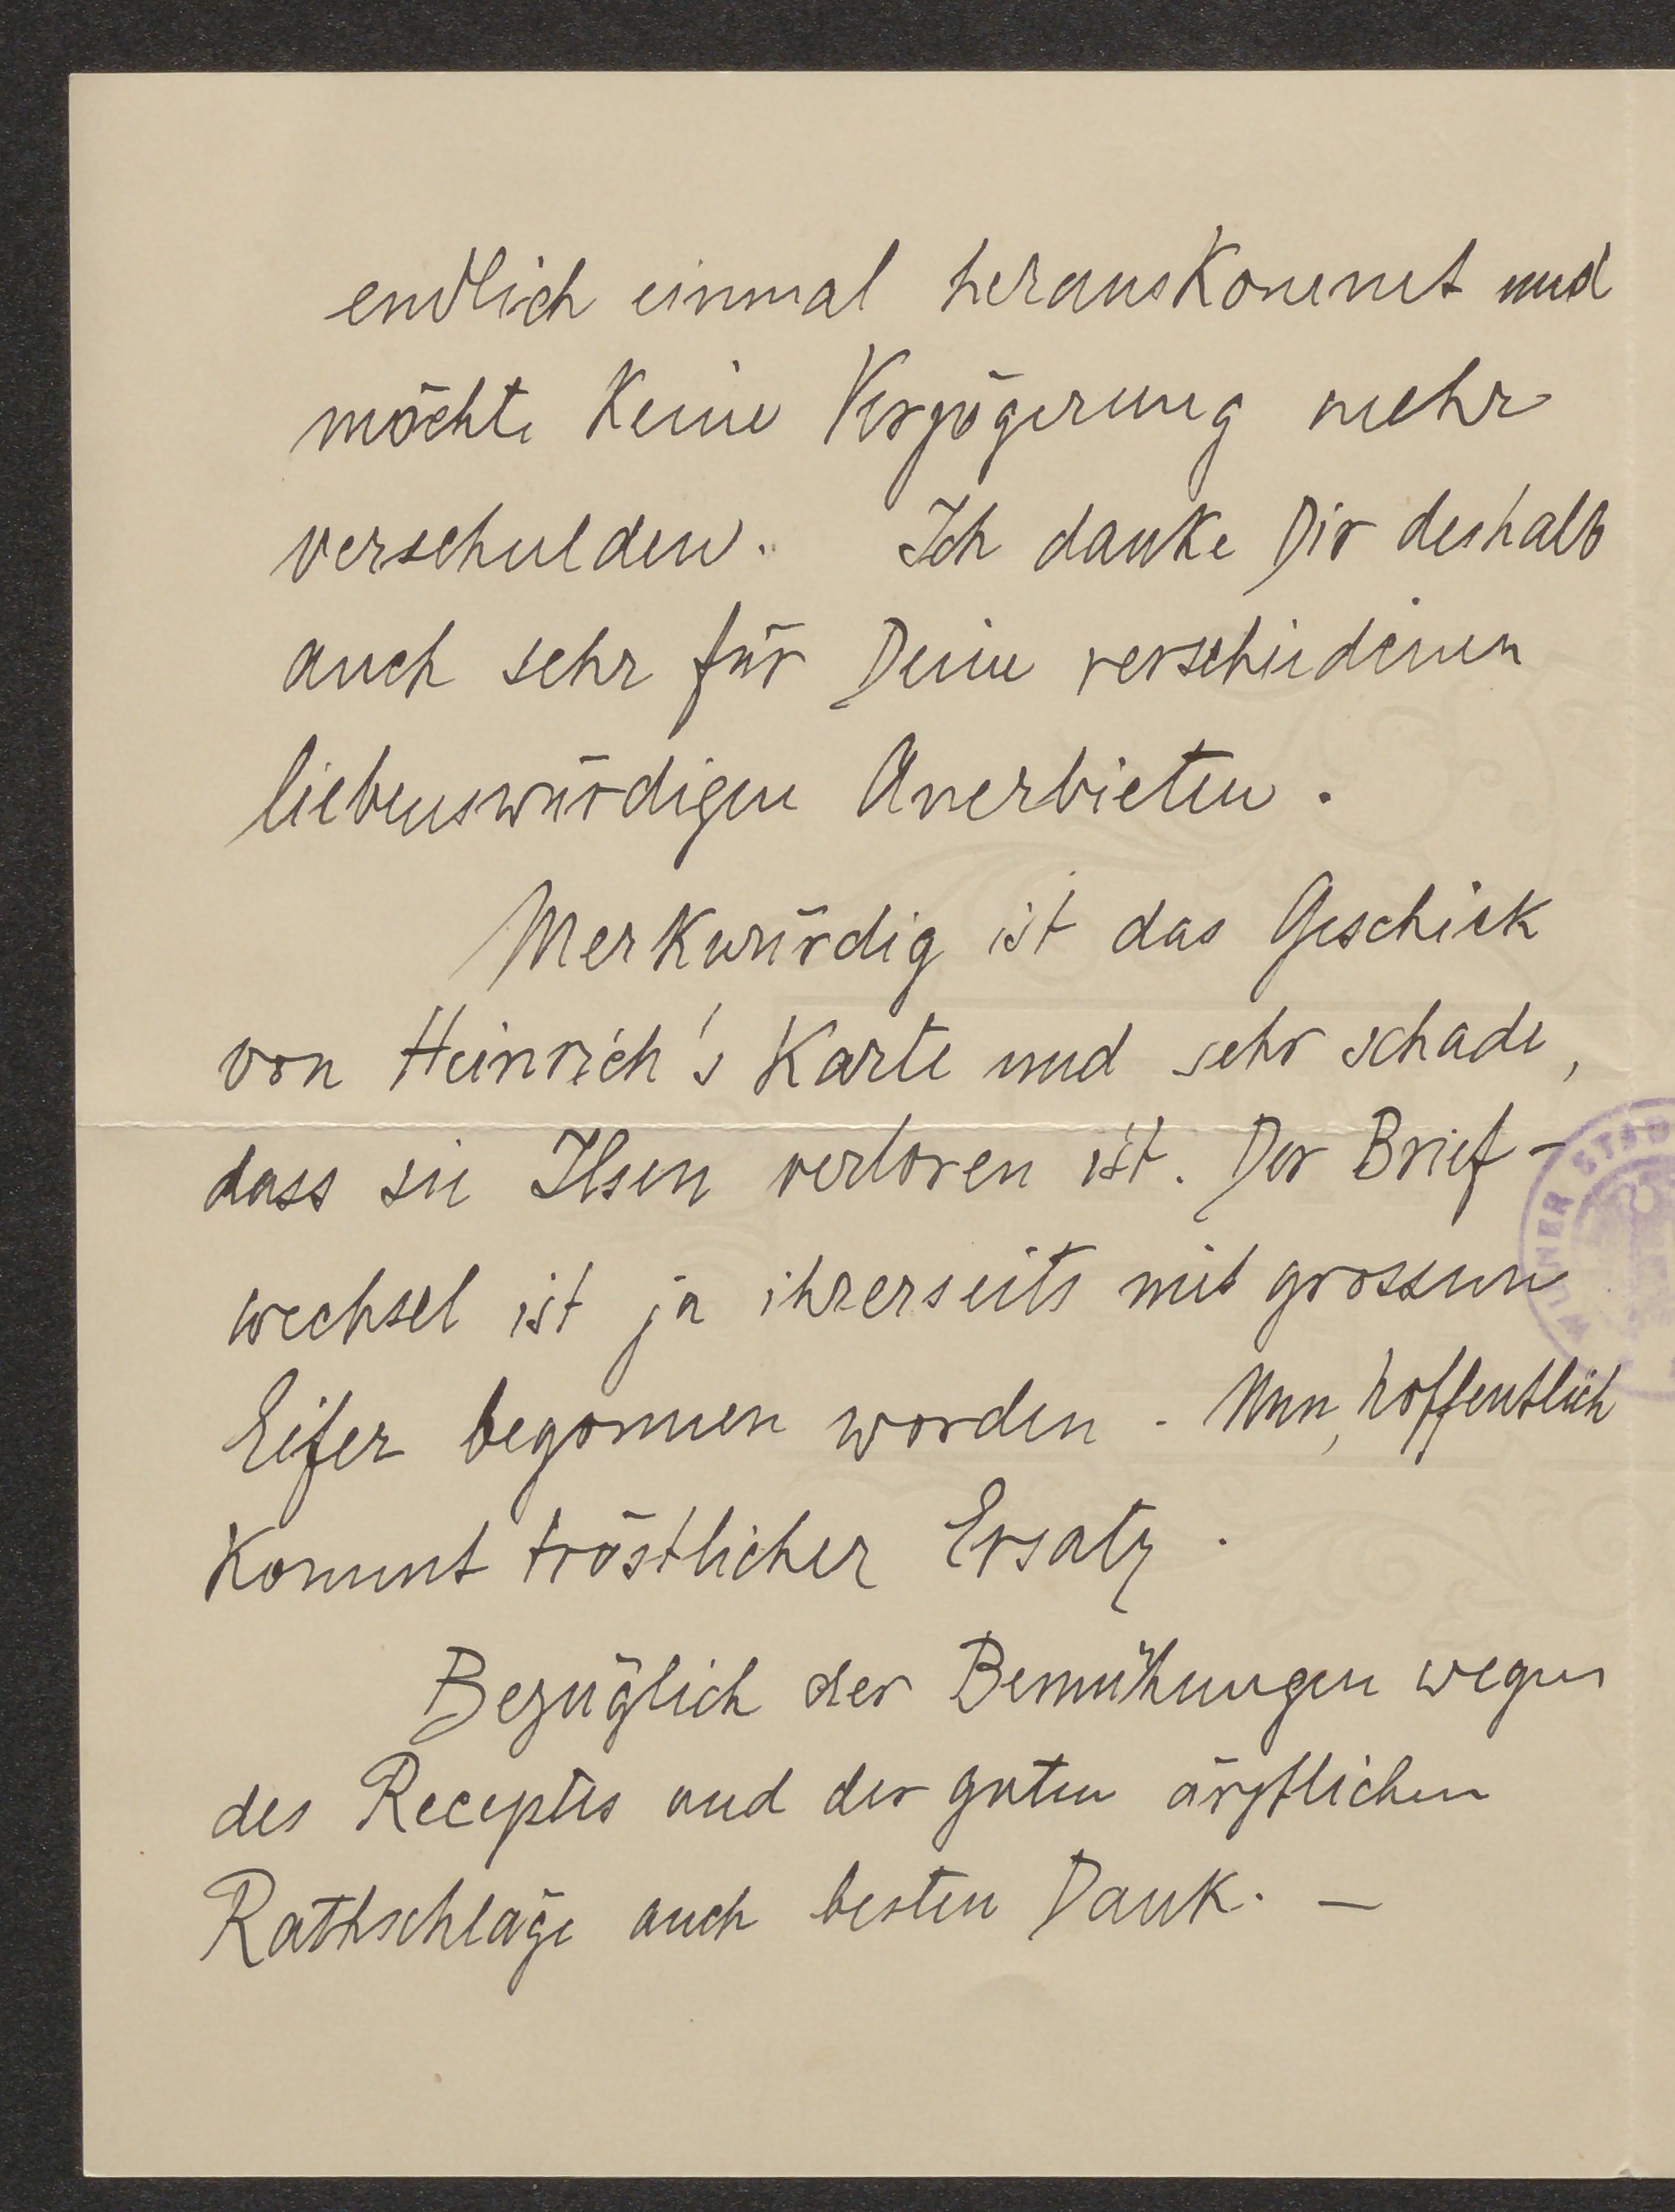 endlich einmal herauskommt und
möchte keine Verzögerung mehr
verschulden. Ich danke Dir deshalb
auch sehr für Deine verschiedenen
liebenswürdigen Anerbieten.
Merkwürdig ist das Geschick
von Heinrich's Karte und sehr schade,
dass sie Ilsen verloren ist. Der Brief-
wechsel ist ja ihrerseits mit grossem
Eifer begonnen worden. Nun, hoffentlich
kommt tröstlicher Ersatz.
Bezüglich der Bemühungen wegen
des Receptes und der guten ärztlichen
Rathschläge auch besten Dank. —
WIENER STAD